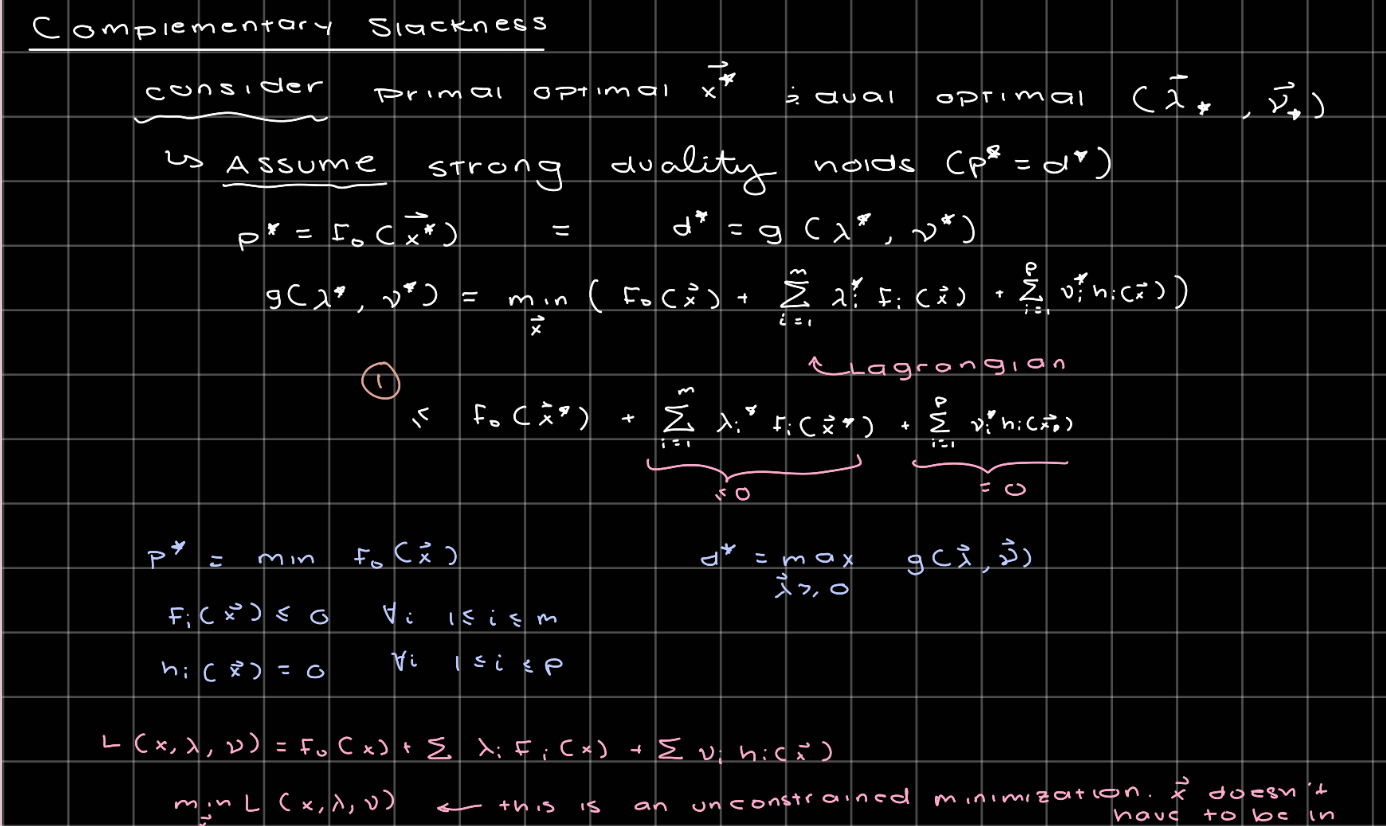 Complementary Slackness
consider primal optimal x⃗* & dual optimal (λ⃗*, ν⃗*)
↳ Assume strong duality holds (p* = d*)
p* = f₀(x⃗*) = d* = g(λ*, ν*)
g(λ*, ν*) = min_x⃗ ( f₀(x⃗) + Σ_{i=1}^{m} λᵢ* fᵢ(x⃗) + Σ_{i=1}^{p} νᵢ* hᵢ(x⃗) )
↖ Lagrangian
① ≤ f₀(x⃗*) + Σ_{i=1}^{m} λᵢ* fᵢ(x⃗*) + Σ_{i=1}^{p} νᵢ* hᵢ(x⃗*)
≤ 0 = 0
p* = min f₀(x⃗) d* = max_{λ⃗ ≥ 0} g(λ⃗, ν⃗)
fᵢ(x⃗) ≤ 0 ∀i 1 ≤ i ≤ m
hᵢ(x⃗) = 0 ∀i 1 ≤ i ≤ p
L(x, λ, ν) = f₀(x) + Σ λᵢ fᵢ(x) + Σ νᵢ hᵢ(x⃗)
min_x⃗ L(x, λ, ν) ← this is an unconstrained minimization. x⃗ doesn't
have to be in